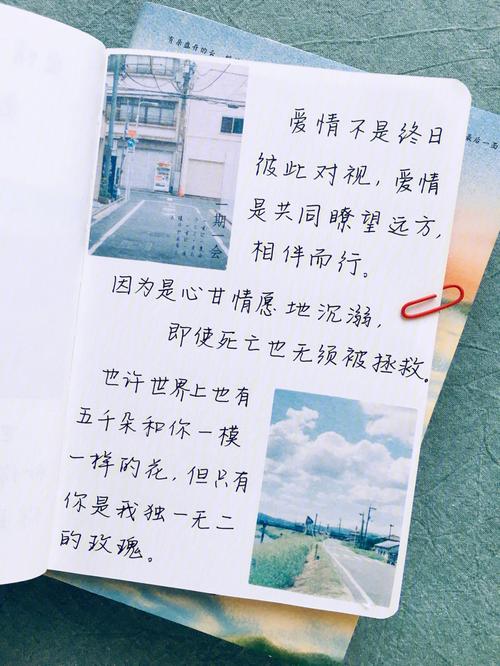 爱情不是终日
彼此对视，爱情
是共同瞭望远方，
相伴而行。
因为是心甘情愿地沉溺，
即使死亡也无须被拯救。
也许世界上也有
五千朵和你一模
一样的花，但只有
你是我独一无二
的玫瑰。
一期一会
最后一面